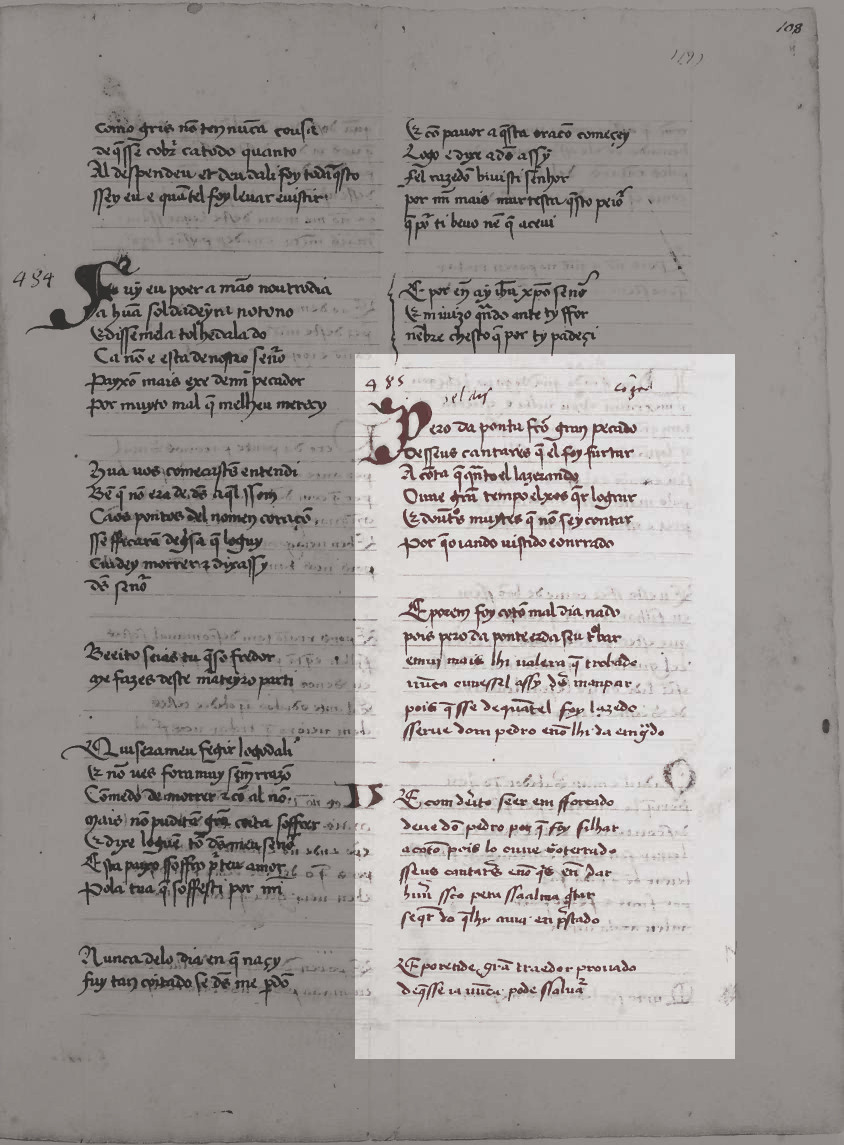 108
Como gris nõ ten nũca cousa
de q̃sse cobr̃ ca todo quanto
Al despendeu et deu dali foy todaq̃sto
ssey eu e quãtel foy levar e vistir
484
uy eu poer a mão noutro dia
a hũa soldadeyra no cono
Et dissemela tolhedala do
Ca nõ e esta de nostro senõr
Payxõ mais exe demĩ pecador
Por muyto mal q̃ melheu mereçy
Hũa uos comecastes entendi
Bẽ q̃ nõ era de ds̃
Caos pontos del no meu coraçõ
sse ffecarã
Cuidey morrer et dixassy
ds̃ senõr
Beeito seias tu q̃
me fazes deste marteyro parti
Quiserameu fogir logo dali
Et nõ ues fora muy sem rrazõ
Cõ medo de morrer et cõ al nõ
mais nõ pudi tã grã coita soffrer
Et dixe logue tõ ds̃ meu senõr
Esta payxõ ssoffro p̃ teu amor
Pola tua q̃ soffresti por mĩ
Nunca delo dia en q̃ naçy
fuy tan coitado se ds̃ me p̃dõ
Et cõ pavor aq̃sta oracõ começey
Logo e dixe a ds̃ assy
Fel e azedo bivisti senhor
por mĩ mais muit esta q̃sto peior
q̃ por ti bevo nẽ q̃
E por en ay ihũ xpõ senõr
Et m iuizo q̃ndo ante ty ffor
nẽbre chesto q̃ por ty padeçi
485
Pero da ponta fez gran pecado
Desseus cantares q̃ el foy furtar
A cota q̃ q̃nto el lazerando
Ouue grã tempo el xos q̃r lograr
Et doutros muytos q̃ nõ sey contar
Por q̃ oi anda uistido e onrrado
E porem foy cotõ mal dia nado
pois pero da ponte erda seu trobar
e muy mais lhi ualera q̃ trobado
nũca ouuessel assy ds̃ manpar
pois q̃ sse de quãtel foy lazedo
sserue dom pedro e nõ lhi da em grado
E com dr̃ito seer en fforcado
deue dõ pedro por q̃ foy filhar
a cotõ pois lo ouue soterrado
sseus cantares e nõ q̃s en dar
hũu ssoo pera ssa alma q̃tar
seq̃r do q̃ lhi aui en p̃stado
E porende grã traedor prouado
de q̃sse ia nũca pode ssaluar